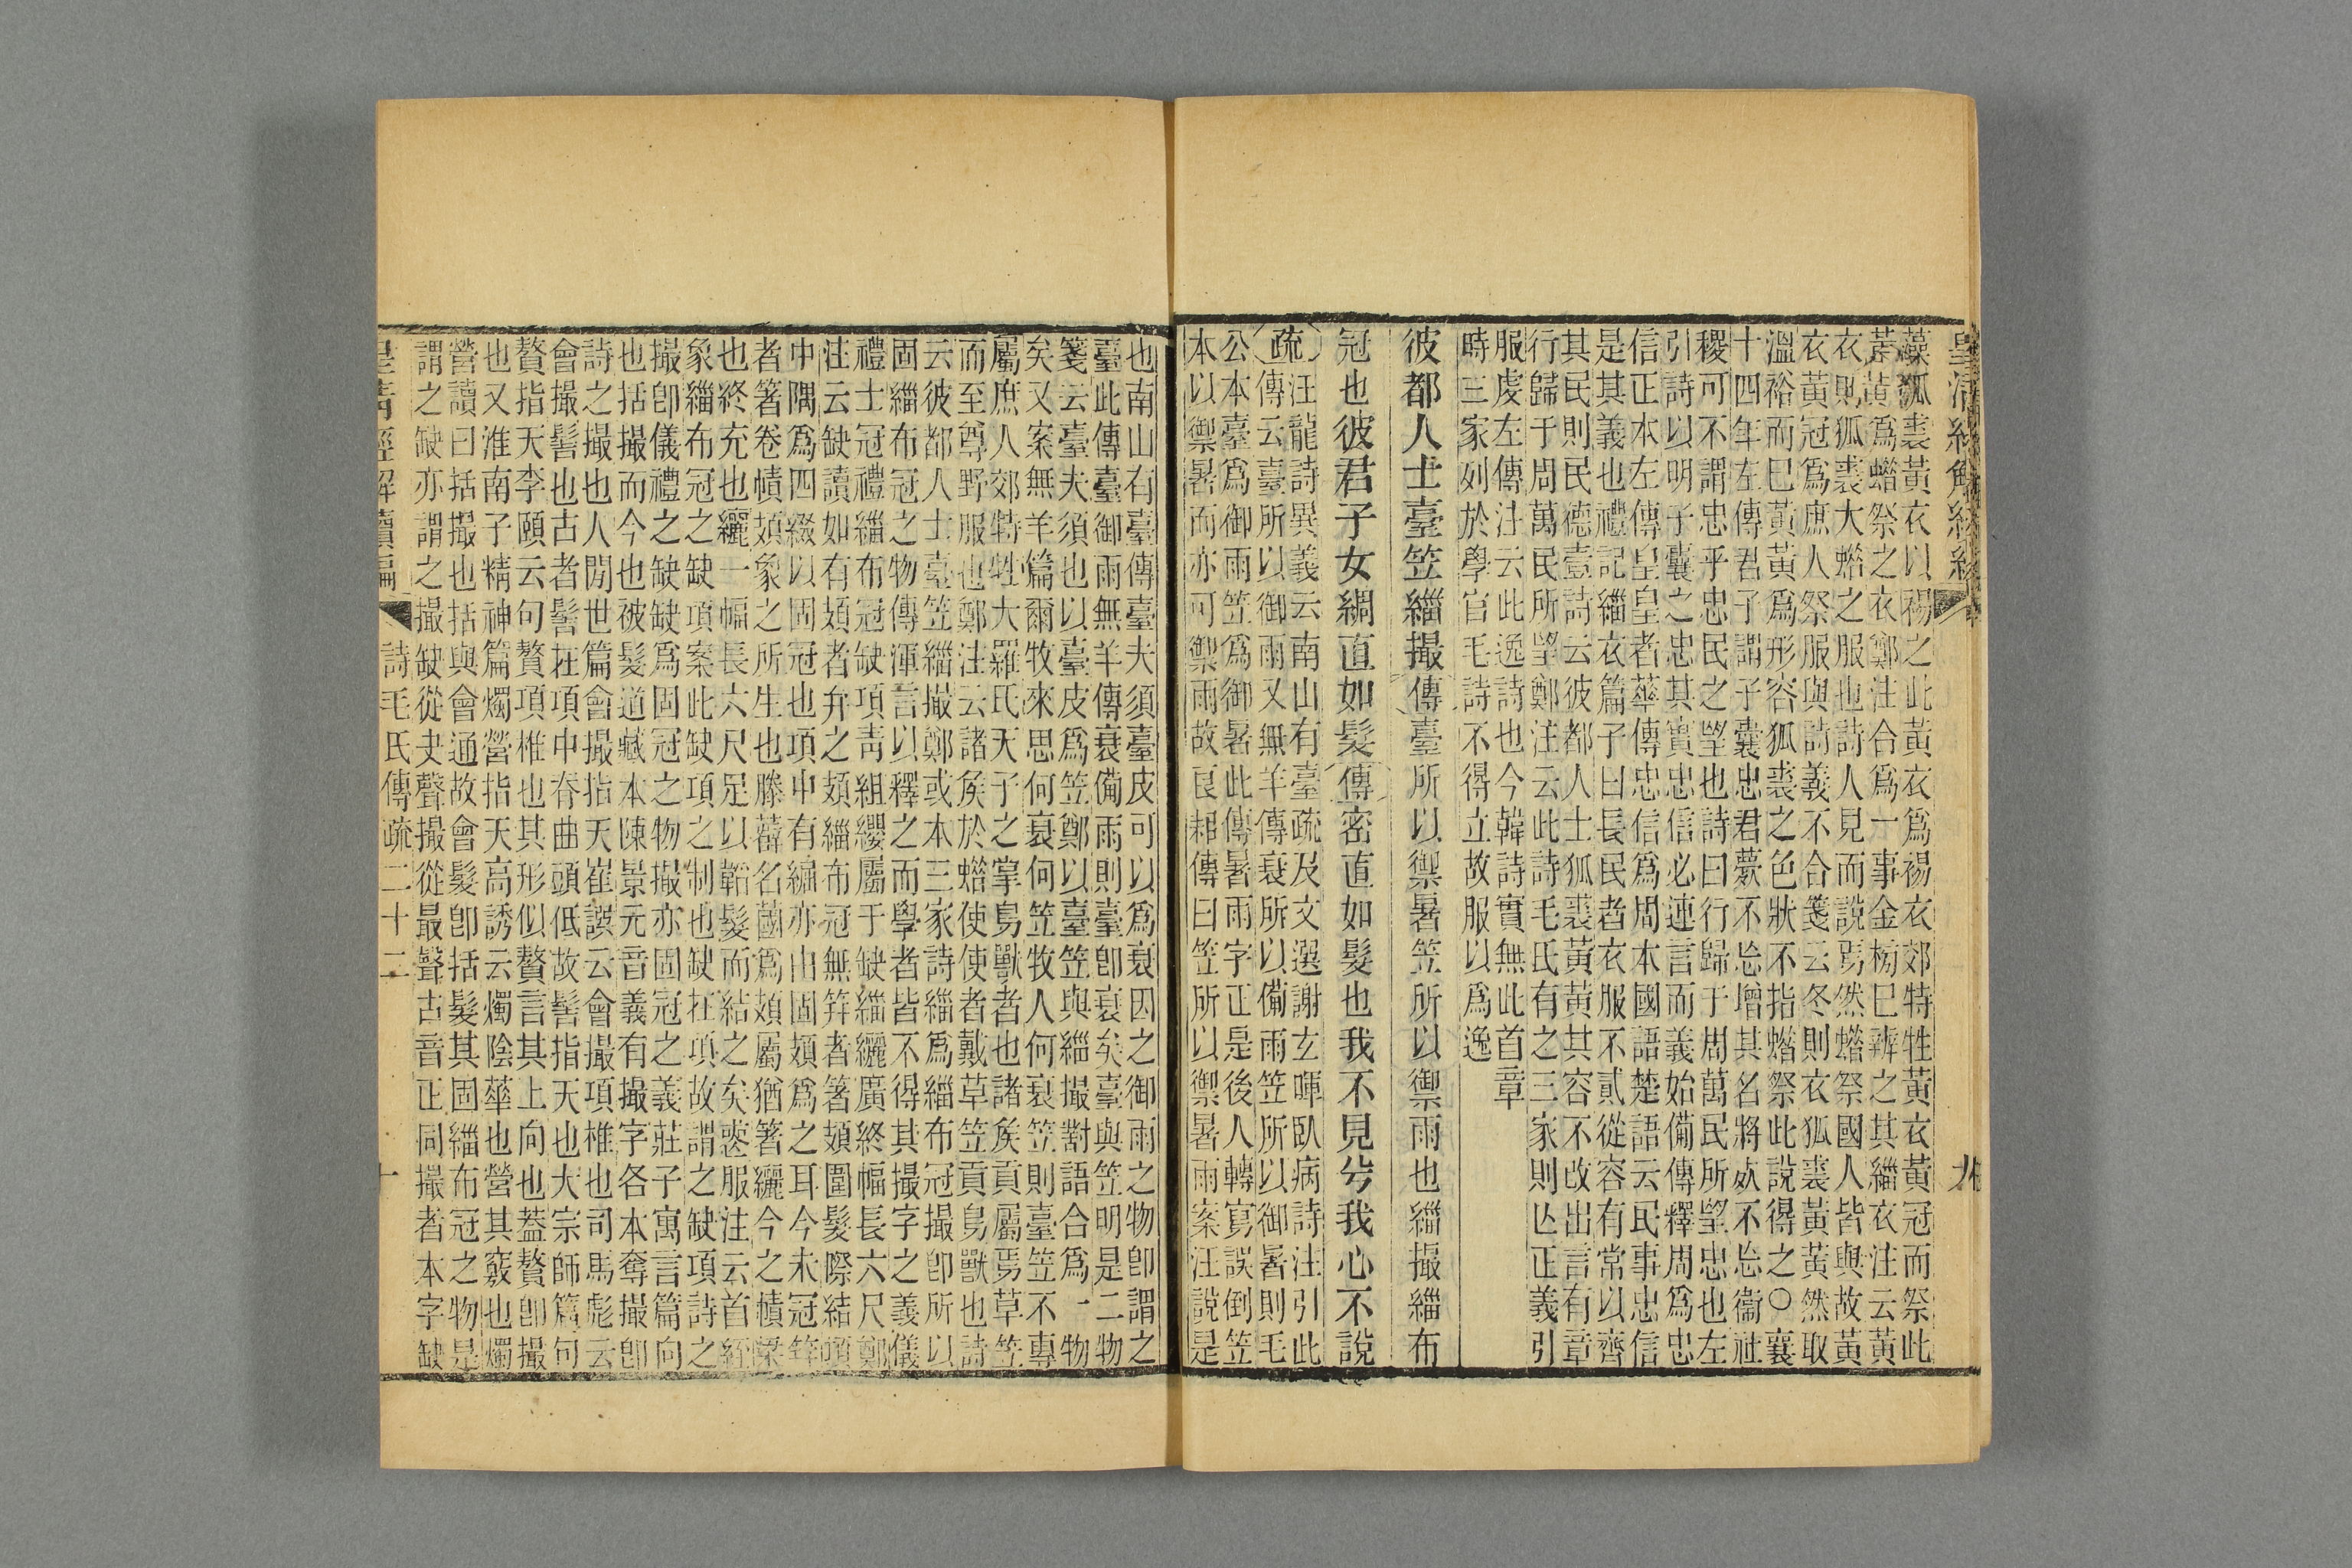 皇清經解續編
九
藻狐裘黃衣以裼之此黃衣爲裼衣郊特牲黃衣黃冠而祭此
黃爲蜡祭之衣鄭注合爲一事金榜巳辨之其緇衣注云黃
衣則狐裘大蜡之服也詩人見而說焉然蜡祭國人皆與故黃
衣黃冠爲庶人祭服與詩義不合箋云冬則衣狐裘黃黃然取
溫裕而巳黃黃爲形容狐裘之色狀不指蜡祭此說得之○襄
十四年左傳君子謂子囊忠君薨不忘增其名將死不忘衞社
稷可不謂忠乎忠民之望也詩曰行歸于周萬民所望忠也左
引詩以明子囊之忠其實忠信必連言而義始備傳釋周爲忠
信正本左傳皇皇者華傳忠信爲周本國語楚語云民事忠信
是其義也禮記緇衣篇子曰長民者衣服不貳從容有常以齊
其民則民德壹詩云彼都人士狐裘黃黃其容不改出言有章
行歸于周萬民所望鄭注云此詩毛氏有之三家則亾正義引
服虔左傳注云此逸詩也今韓詩實無此首章
時三家列於學官毛詩不得立故服以爲逸
彼都人士臺笠緇撮傳臺所以禦暑笠所以禦雨也緇撮緇布
冠也彼君子女綢直如髮傳密直如髮也我不見兮我心不說
疏汪龍詩異義云南山有臺疏及文選謝玄暉臥病詩注引此
傳云臺所以御雨又無羊傳蓑所以備雨笠所以御暑則毛
公本臺爲御雨笠爲御暑此傳暑雨字正是後人轉寫誤倒笠
本以禦暑而亦可禦雨故良耜傳曰笠所以禦暑雨案汪說是
也南山有臺傳臺夫須臺皮可以爲蓑因之御雨之物卽謂之
臺此傳臺御雨無羊傳蓑備雨則臺卽蓑矣臺與笠明是二物
箋云臺夫須也以臺皮爲笠鄭以臺笠與緇撮對語合爲一物
矣又案無羊篇爾牧來思何蓑何笠牧人何蓑笠則臺笠不專
屬庶人郊特牲大羅氏天子之掌鳥獸者也諸矦貢屬焉草笠
而至尊野服也鄭注云諸矦於蜡使使者戴草笠貢鳥獸也詩
云彼都人士臺笠緇撮鄭或本三家詩緇爲緇布冠撮卽所以
固緇布冠之物傳渾言以釋之而學者皆不得其撮字之義儀
禮士冠禮緇布冠缺項靑組纓屬于缺緇纚廣終幅長六尺鄭
注云缺讀如有頍者弁之頍緇布冠無筓者箸頍圍髮際結項
中隅爲四綴以固冠也項中有䋎亦由固頍爲之耳今未冠筓
者箸卷幘頍象之所生也滕薛名蔮爲頍屬猶箸纚今之幘梁
也終充也纚一幅長六尺足以韜髮而結之矣喪服注云首絰
象緇布冠之缺項案此缺項之制也缺在項故謂之缺項詩之
撮卽儀禮之缺缺爲固冠之物撮亦固冠之義莊子寓言篇向
也括撮而今也被髮道藏本陳景元音義有撮字各本奪撮卽
詩之撮也人閒世篇會撮指天崔譔云會撮項椎也司馬彪云
會撮髻也古者髻在項中脊曲頭低故髻指天也大宗師篇句
贅指天李頤云句贅項椎也其形似贅言其上向也葢贅卽撮
也又淮南子精神篇燭營指天高誘云燭陰華也營其竅也燭
營讀曰括撮也括與會通故會髮卽括髮其固緇布冠之物是
謂之缺亦謂之撮缺從夬聲撮從最聲古音正同撮者本字缺
皇清經解續編
詩毛氏傳疏二十二
十